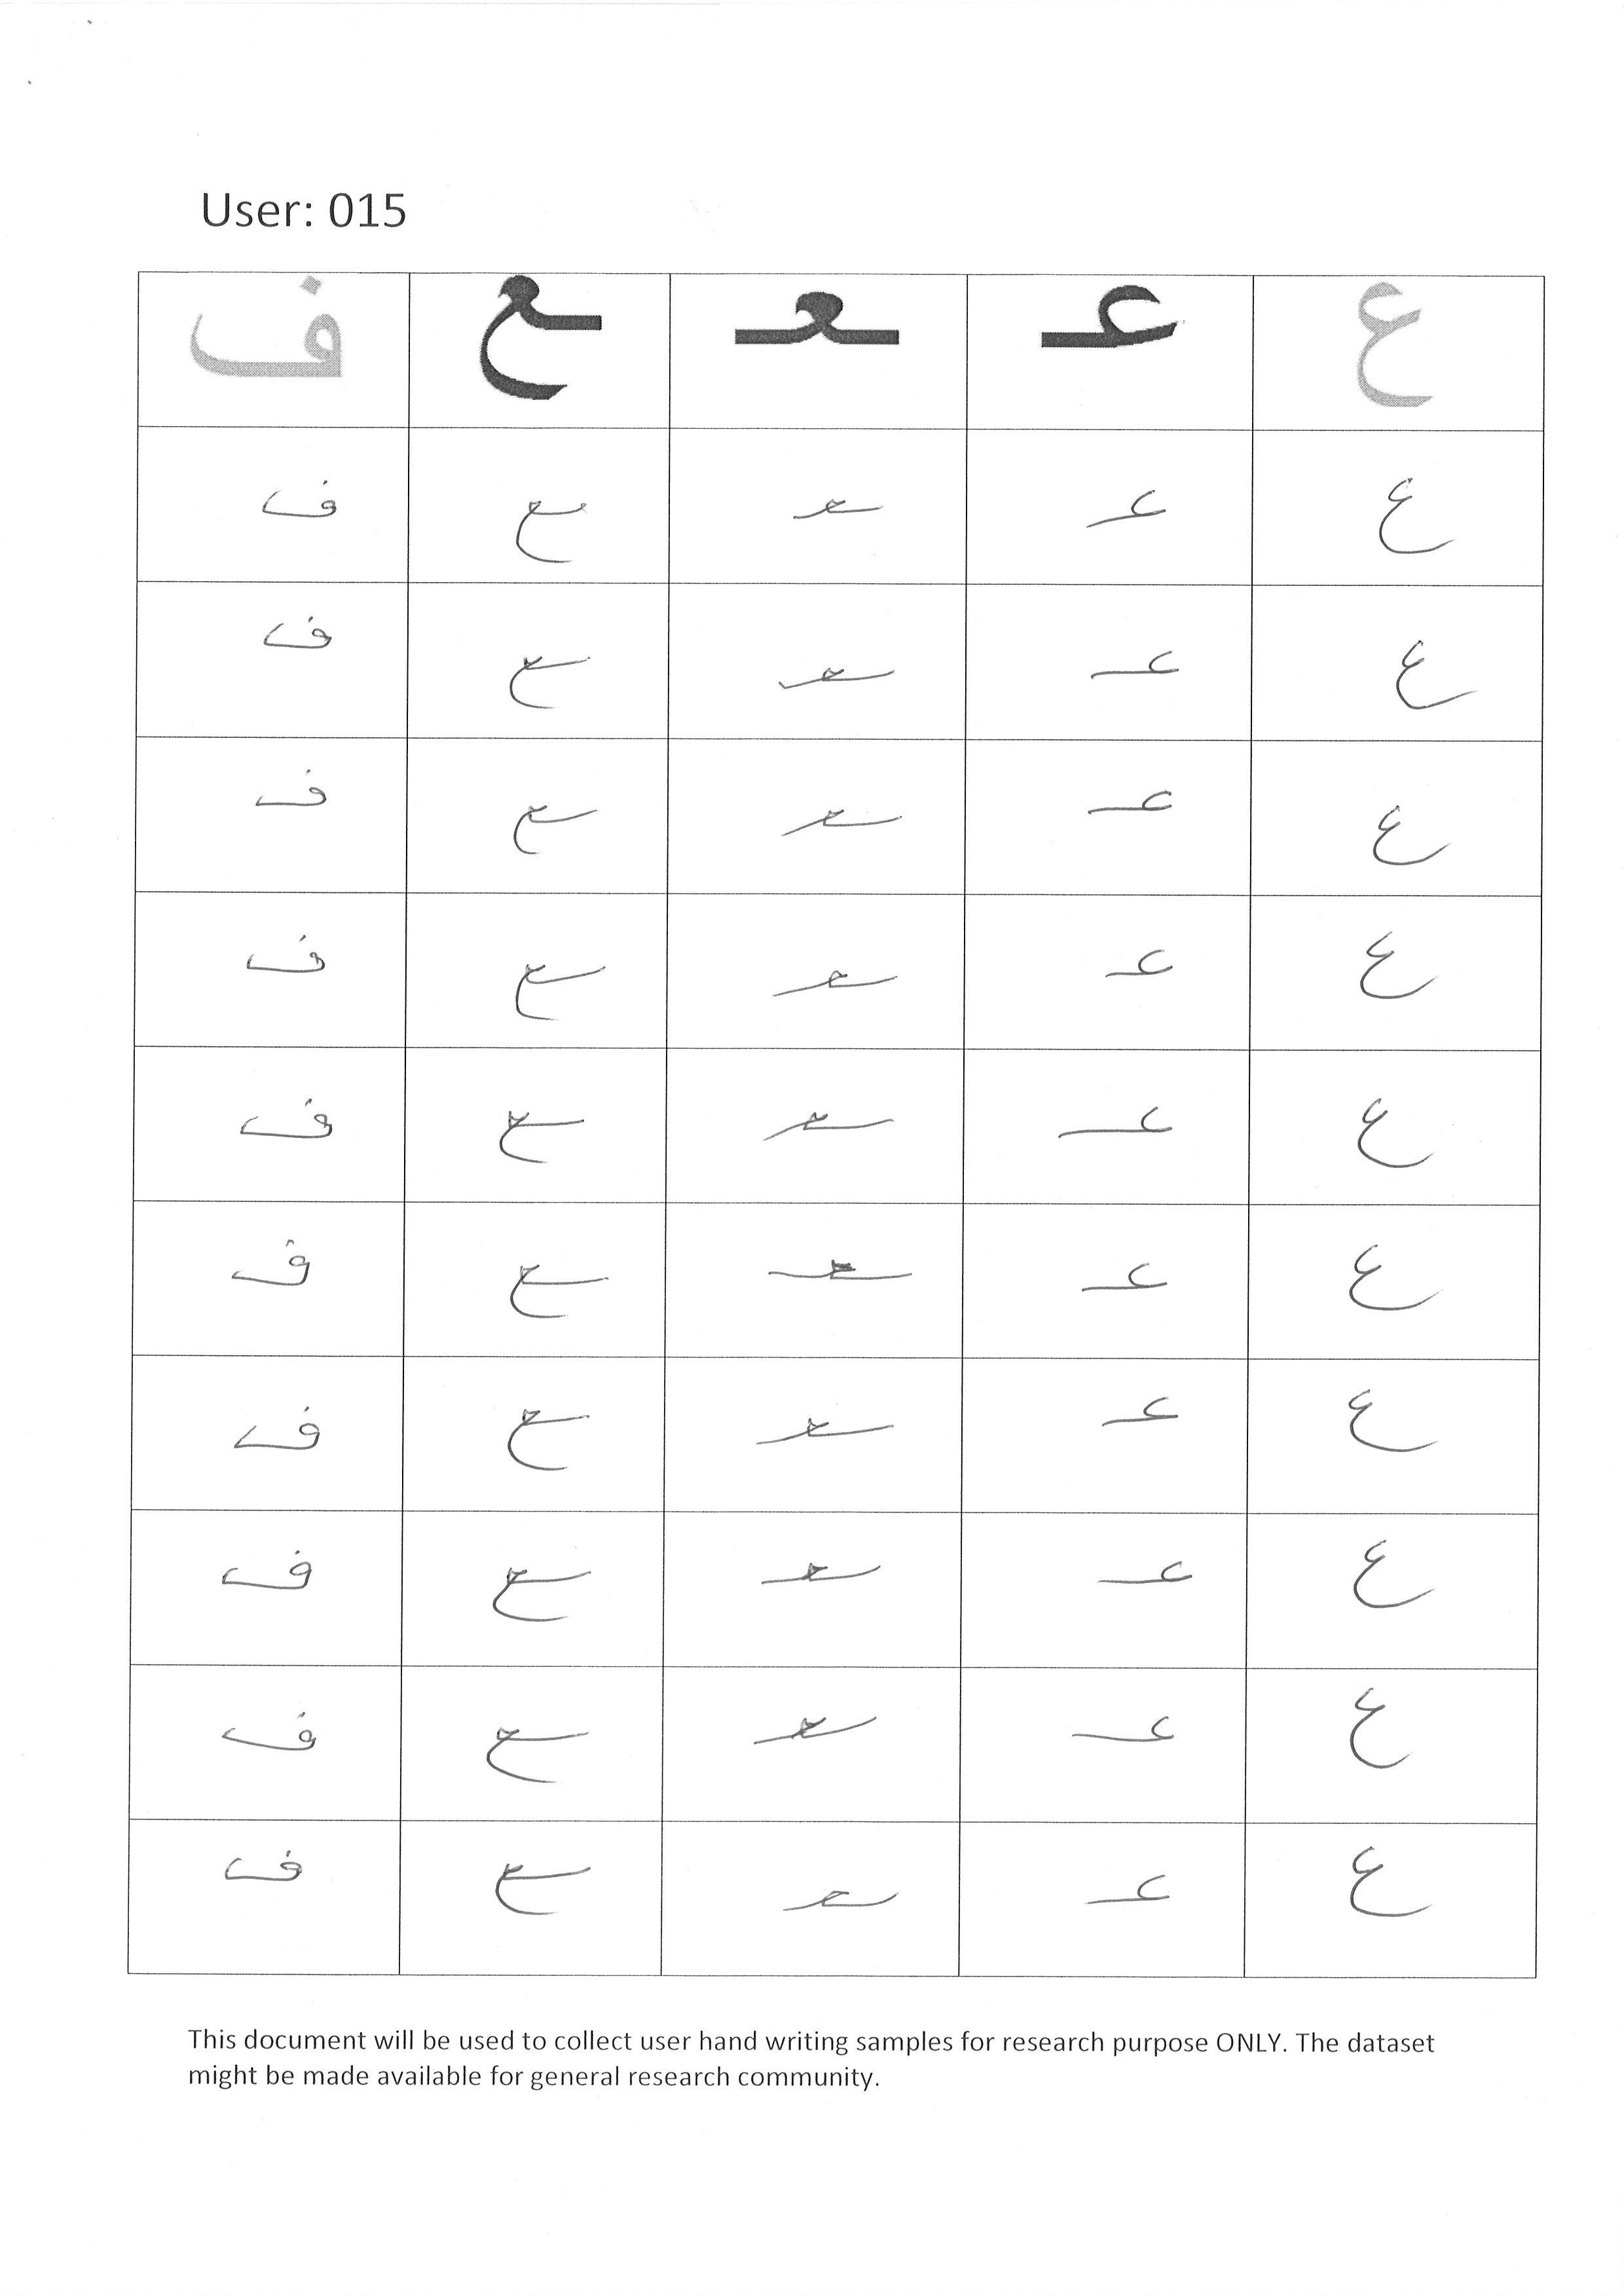 User: 015
ع عـ ـعـ ـع ف
ع عـ ـعـ ـع ف
ع عـ ـعـ ـع ف
ع عـ ـعـ ـع ف
ع عـ ـعـ ـع ف
ع عـ ـعـ ـع ف
ع عـ ـعـ ـع ف
ع عـ ـعـ ـع ف
ع عـ ـعـ ـع ف
ع عـ ـعـ ـع ف
ع عـ ـعـ ـع ف
This document will be used to collect user hand writing samples for research purpose ONLY. The dataset
might be made available for general research community.